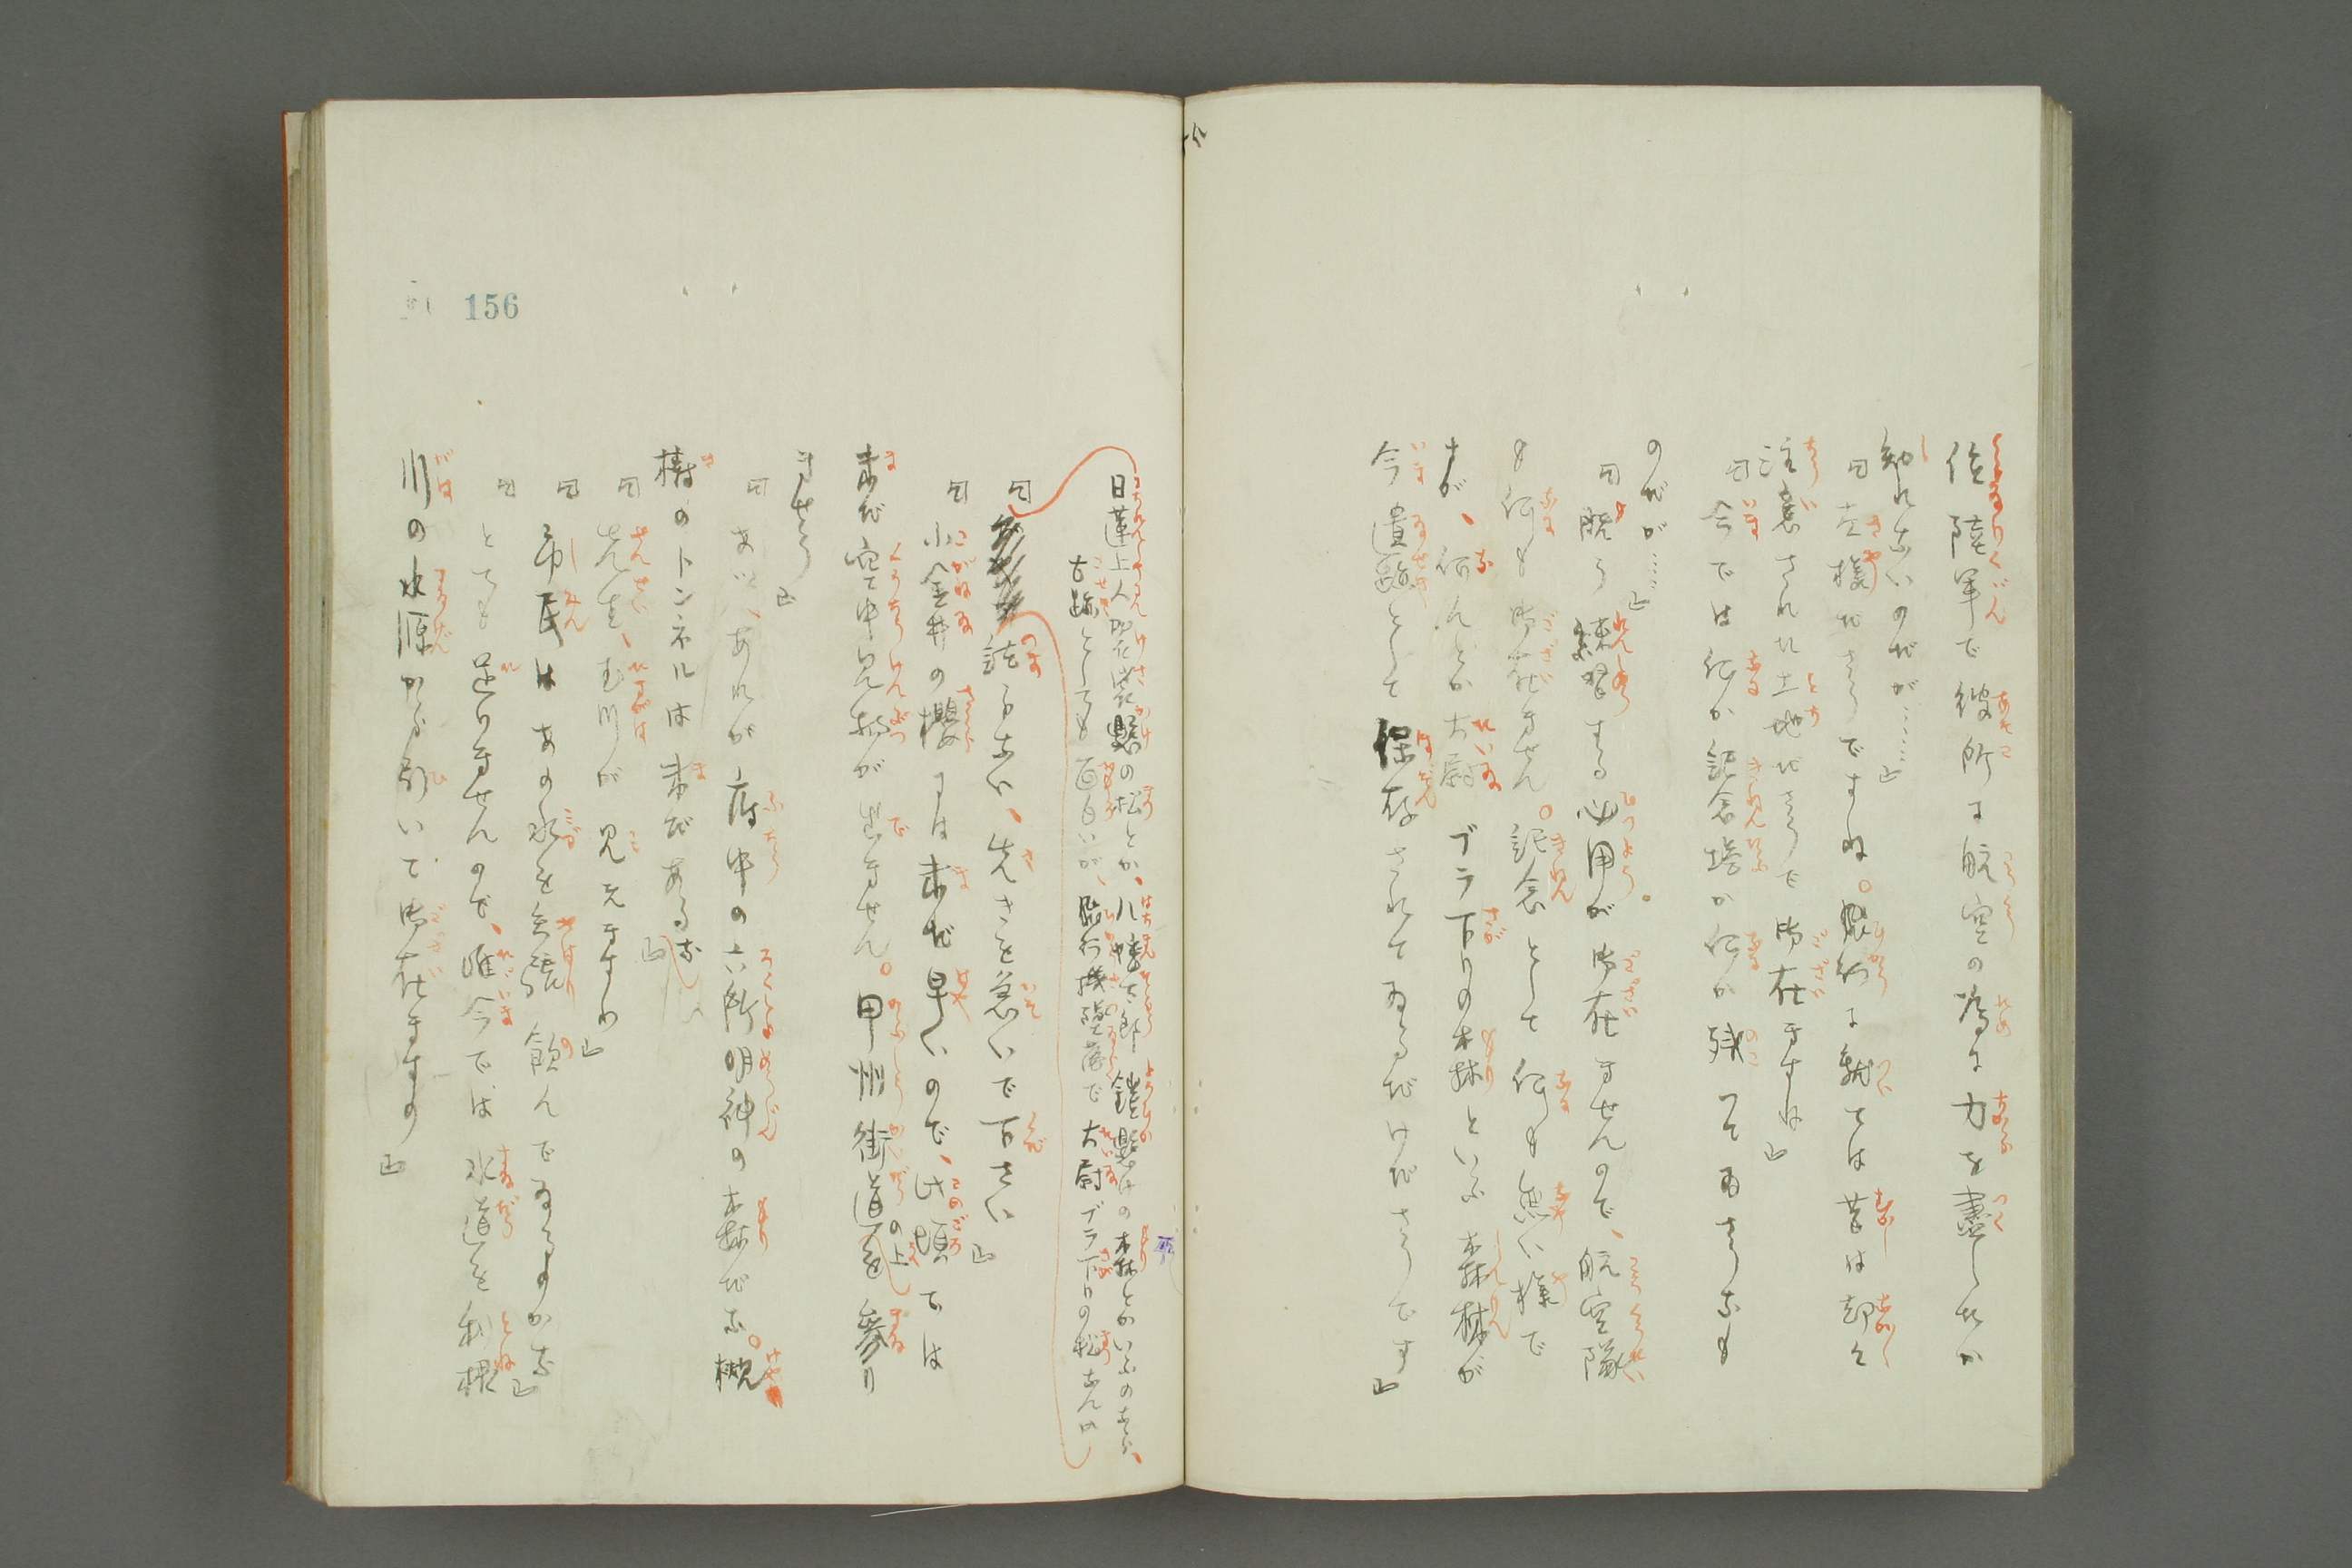 位陸軍で彼所は航空の為に力を盡したか
知れないのだが……』
『左様ださうですね。飛行に就ては昔は却々
注意された土地ださうで御在ますね』
『今では何か記念塔か何か残つてゐさうなも
のだが……』
『既う練習する必用が御在ませんので、航空隊
も何も御在ません。記念として何も無い様で
すが、何んとか大尉ブラ下りの森といふ森林が
今遺跡として保存されてゐるだけださうです』
日蓮上人袈裟懸の松とか、八幡太郎鎧懸けの森とかいふのなら、
古跡としても面白いが、飛行機墜落で大尉ブラ下りの松なんぬ
『話らない、先きを急いで下さい』
『小金井の櫻には未だ早いので、此頃では
未だ空中見物が出ません。甲州街道の上を参り
ませう』
『あい、あれが府中の六所明神の森だな。槻
樹のトンネルは未だあるな』
『先生、玉川が見えますわ』
『市民はあの水を矢張り飲んでゐるのかな』
『とても足りませんので、唯今では水道を利根
川の水源から引いて御在ますの』
156